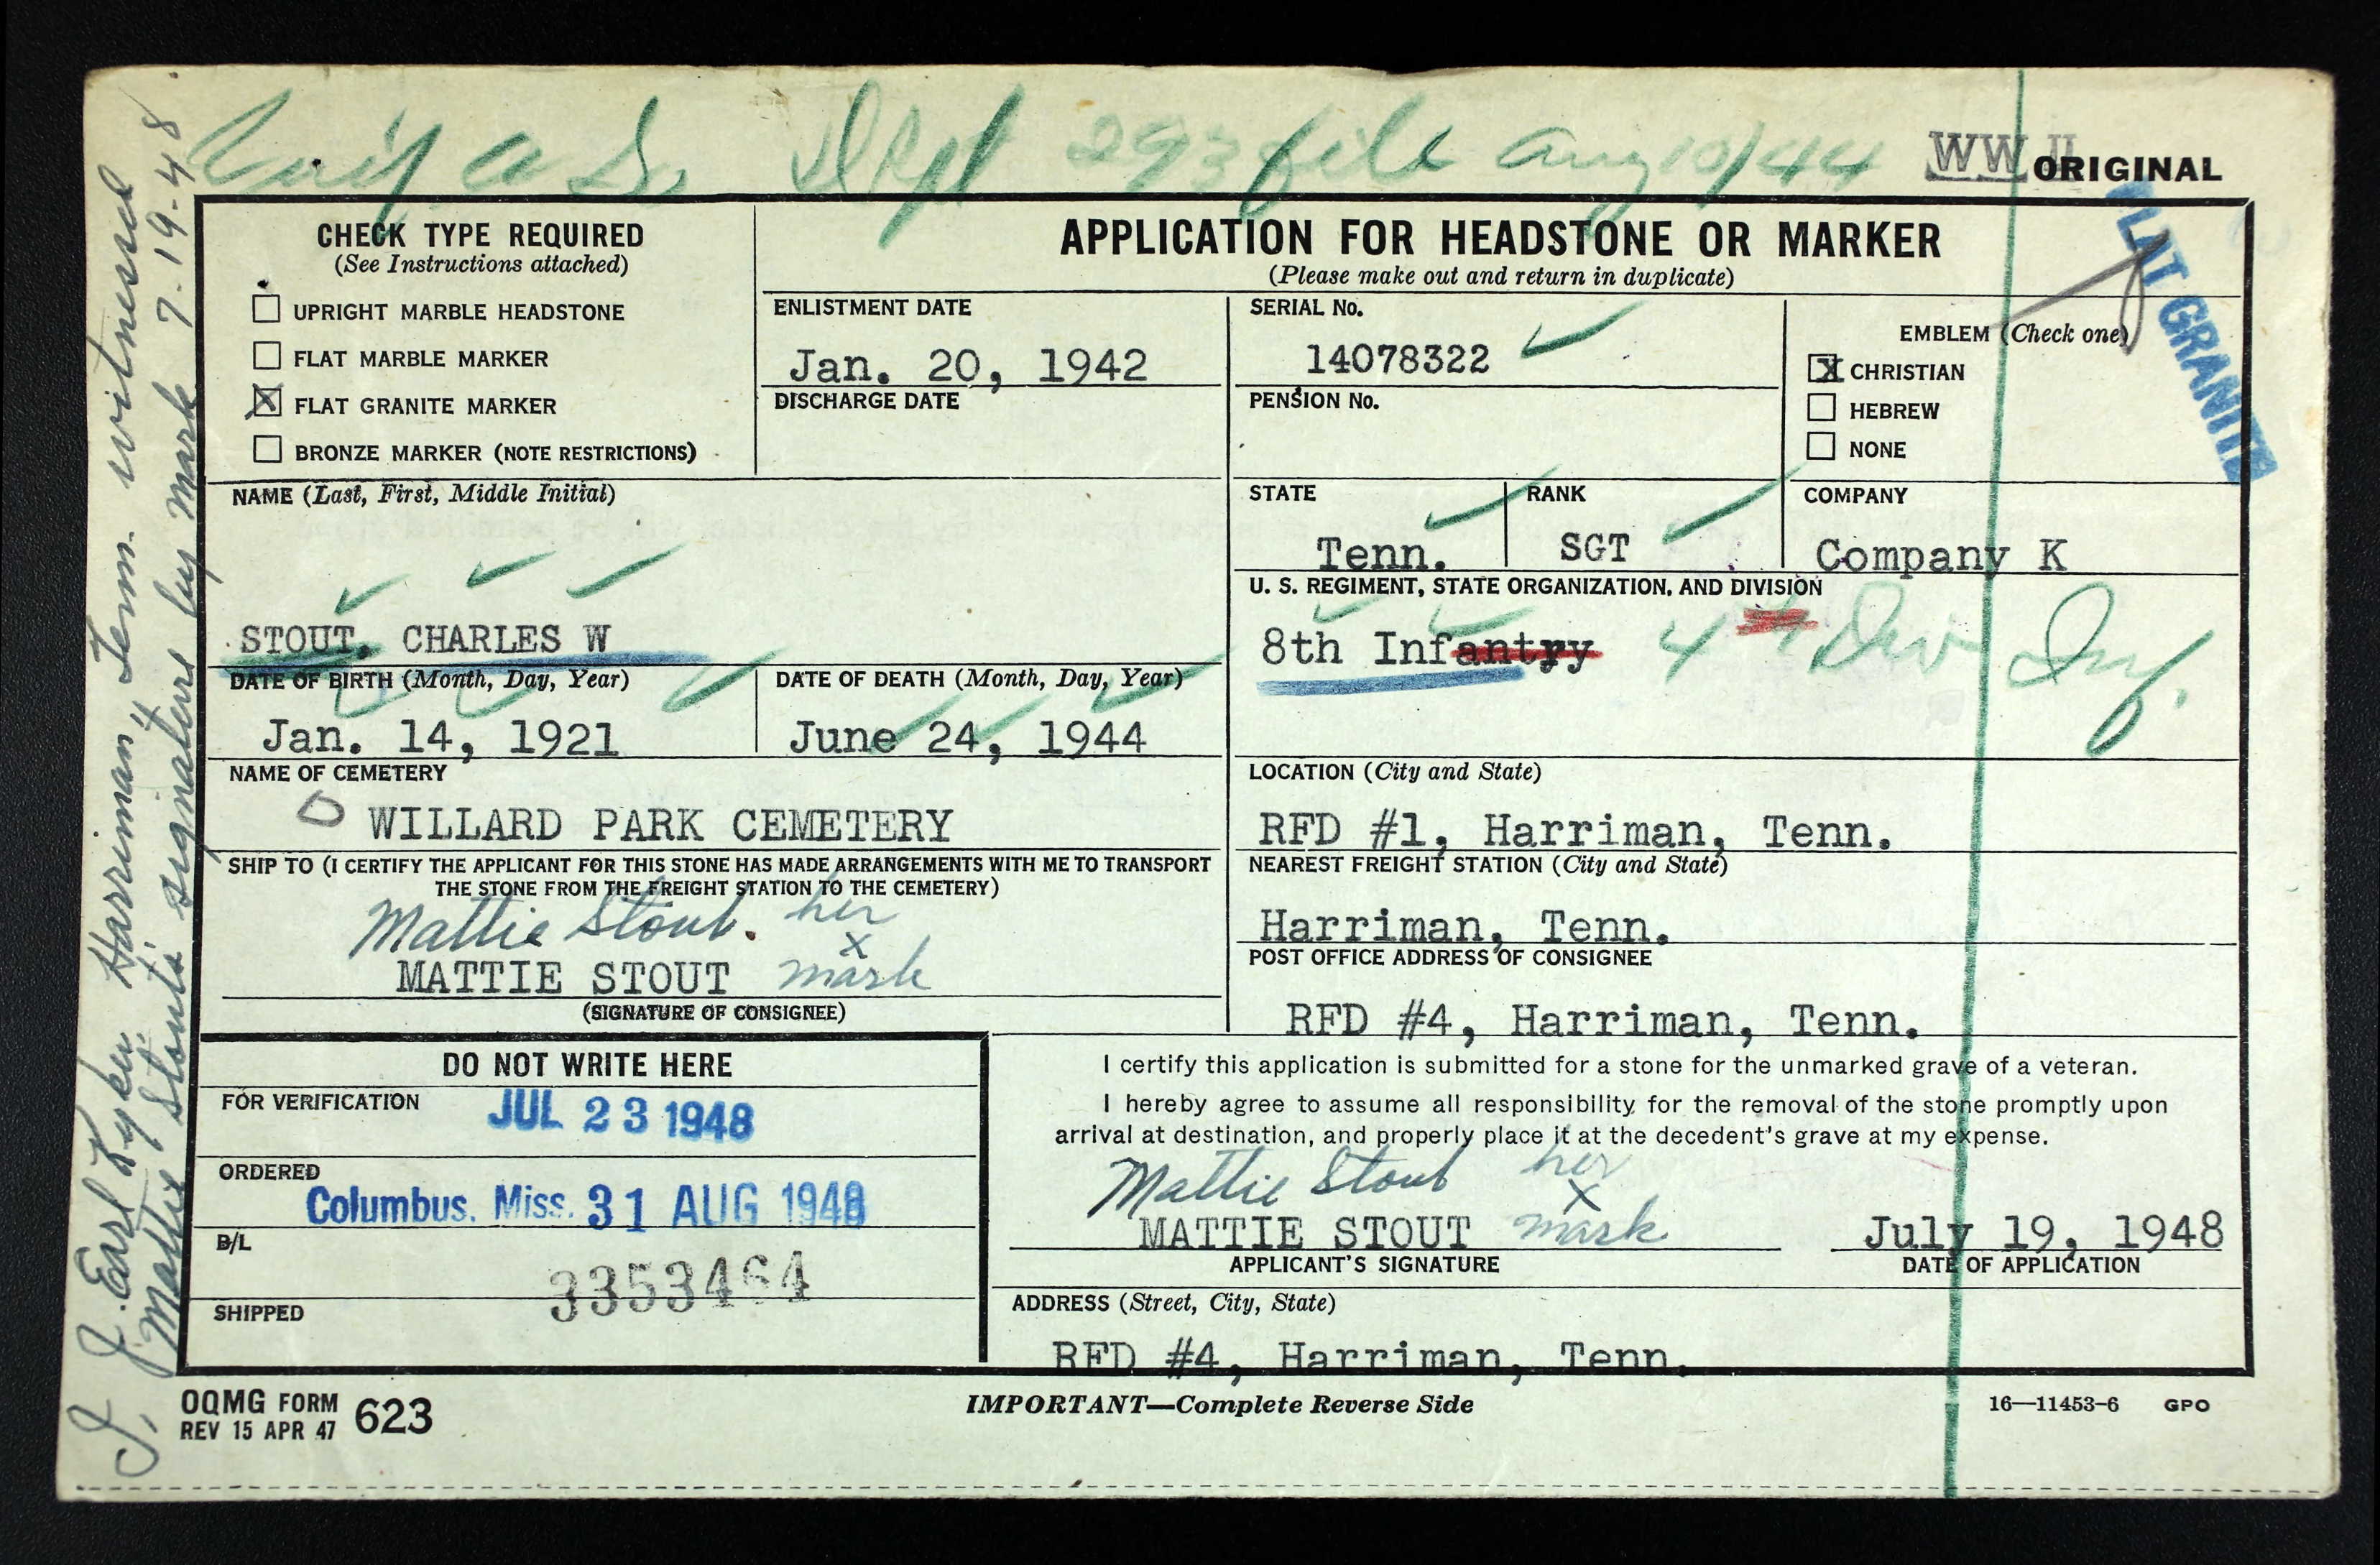 293 file Aug 10/44
WW II
ORIGINAL
FLAT GRANITE
CHECK TYPE REQUIRED
(See Instructions attached)
UPRIGHT MARBLE HEADSTONE
FLAT MARBLE MARKER
X FLAT GRANITE MARKER
BRONZE MARKER (NOTE RESTRICTIONS)
APPLICATION FOR HEADSTONE OR MARKER
(Please make out and return in duplicate)
ENLISTMENT DATE
Jan. 20, 1942
DISCHARGE DATE
SERIAL No.
14078322
PENSION No.
EMBLEM (Check one)
X CHRISTIAN
HEBREW
NONE
NAME (Last, First, Middle Initial)
STOUT, CHARLES W
STATE
Tenn.
RANK
SGT
COMPANY
Company K
U. S. REGIMENT, STATE ORGANIZATION, AND DIVISION
8th Infantry 4th Div Inf.
DATE OF BIRTH (Month, Day, Year)
Jan. 14, 1921
DATE OF DEATH (Month, Day, Year)
June 24, 1944
NAME OF CEMETERY
WILLARD PARK CEMETERY
LOCATION (City and State)
RFD #1, Harriman, Tenn.
SHIP TO (I CERTIFY THE APPLICANT FOR THIS STONE HAS MADE ARRANGEMENTS WITH ME TO TRANSPORT
THE STONE FROM THE FREIGHT STATION TO THE CEMETERY)
Mattie Stout. her
x
MATTIE STOUT mark
(SIGNATURE OF CONSIGNEE)
NEAREST FREIGHT STATION (City and State)
Harriman, Tenn.
POST OFFICE ADDRESS OF CONSIGNEE
RFD #4, Harriman, Tenn.
DO NOT WRITE HERE
FOR VERIFICATION
JUL 23 1948
ORDERED
Columbus, Miss. 31 AUG 1948
B/L
3353464
SHIPPED
I certify this application is submitted for a stone for the unmarked grave of a veteran.
I hereby agree to assume all responsibility for the removal of the stone promptly upon
arrival at destination, and properly place it at the decedent's grave at my expense.
Mattie Stout her
x
MATTIE STOUT mark
APPLICANT'S SIGNATURE
July 19, 1948
DATE OF APPLICATION
ADDRESS (Street, City, State)
RFD #4, Harriman, Tenn.
OQMG FORM 623
REV 15 APR 47
IMPORTANT—Complete Reverse Side
16—11453-6 GPO
I, J. Earl Harriman, Tenn. witnessed
Mattie Stout's signature by mark 7-19-48